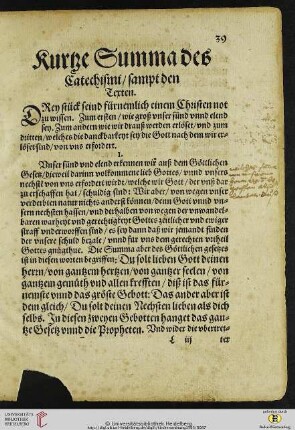 39
Kurtze Summa des
Catechismi / sampt den
Texten.
DRey stück seind fürnemlich einem Christen not
zu wissen. Zum ersten / wie groß vnser sünd vnnd elend
sey. Zum andern wie wir drauß werden erlöset / vnd zum
dritten / welches die danckbarkeyt sey die Gott nach dem wir er-
löset sind / von vns erfordert.
I.
Vnser sünd vnd elend erkennen wir auß dem Göttlichen
Gesetz / dieweil darinn volkommene lieb Gottes / vnnd vnsers
nechsten von vns erfordert wirdt / welche wir Gott / der vnß dar
zu erschaffen hat / schuldig sind: Wir aber / von wegen vnser
verderbten natur nichts anderst können / denn Gott vnnd vn-
sern nechsten hassen / vnd deßhalben von wegen der vnwandel-
baren warheyt vnd gerechtigkeyt Gottes zeitlicher vnd ewiger
straff vnderworffen sind / es sey dann daß wir jemand finden
der vnsere schuld bezale / vnnd für vns dem gerechten vrtheil
Gottes gnůgthue. Die Summa aber des Göttlichen gesetzes
ist in diesen worten begriffen: Du solt lieben Gott deinen
herrn / von gantzem hertzen / von gantzer seelen / von
gantzem gemüth vnd allen krefften / diß ist das für-
nemste vnnd das gröste Gebott: Das ander aber ist
dem gleich / Du solt deinen Nechsten lieben als dich
selbs. In diesen zweyen Gebotten hanget das gan-
tze Gesetz vnnd die Propheten. Vnd wider die vbertret-
L iij
ter
UNIVERSITÄTS-BIBLIOTHEK HEIDELBERG
© Universitätsbibliothek Heidelberg